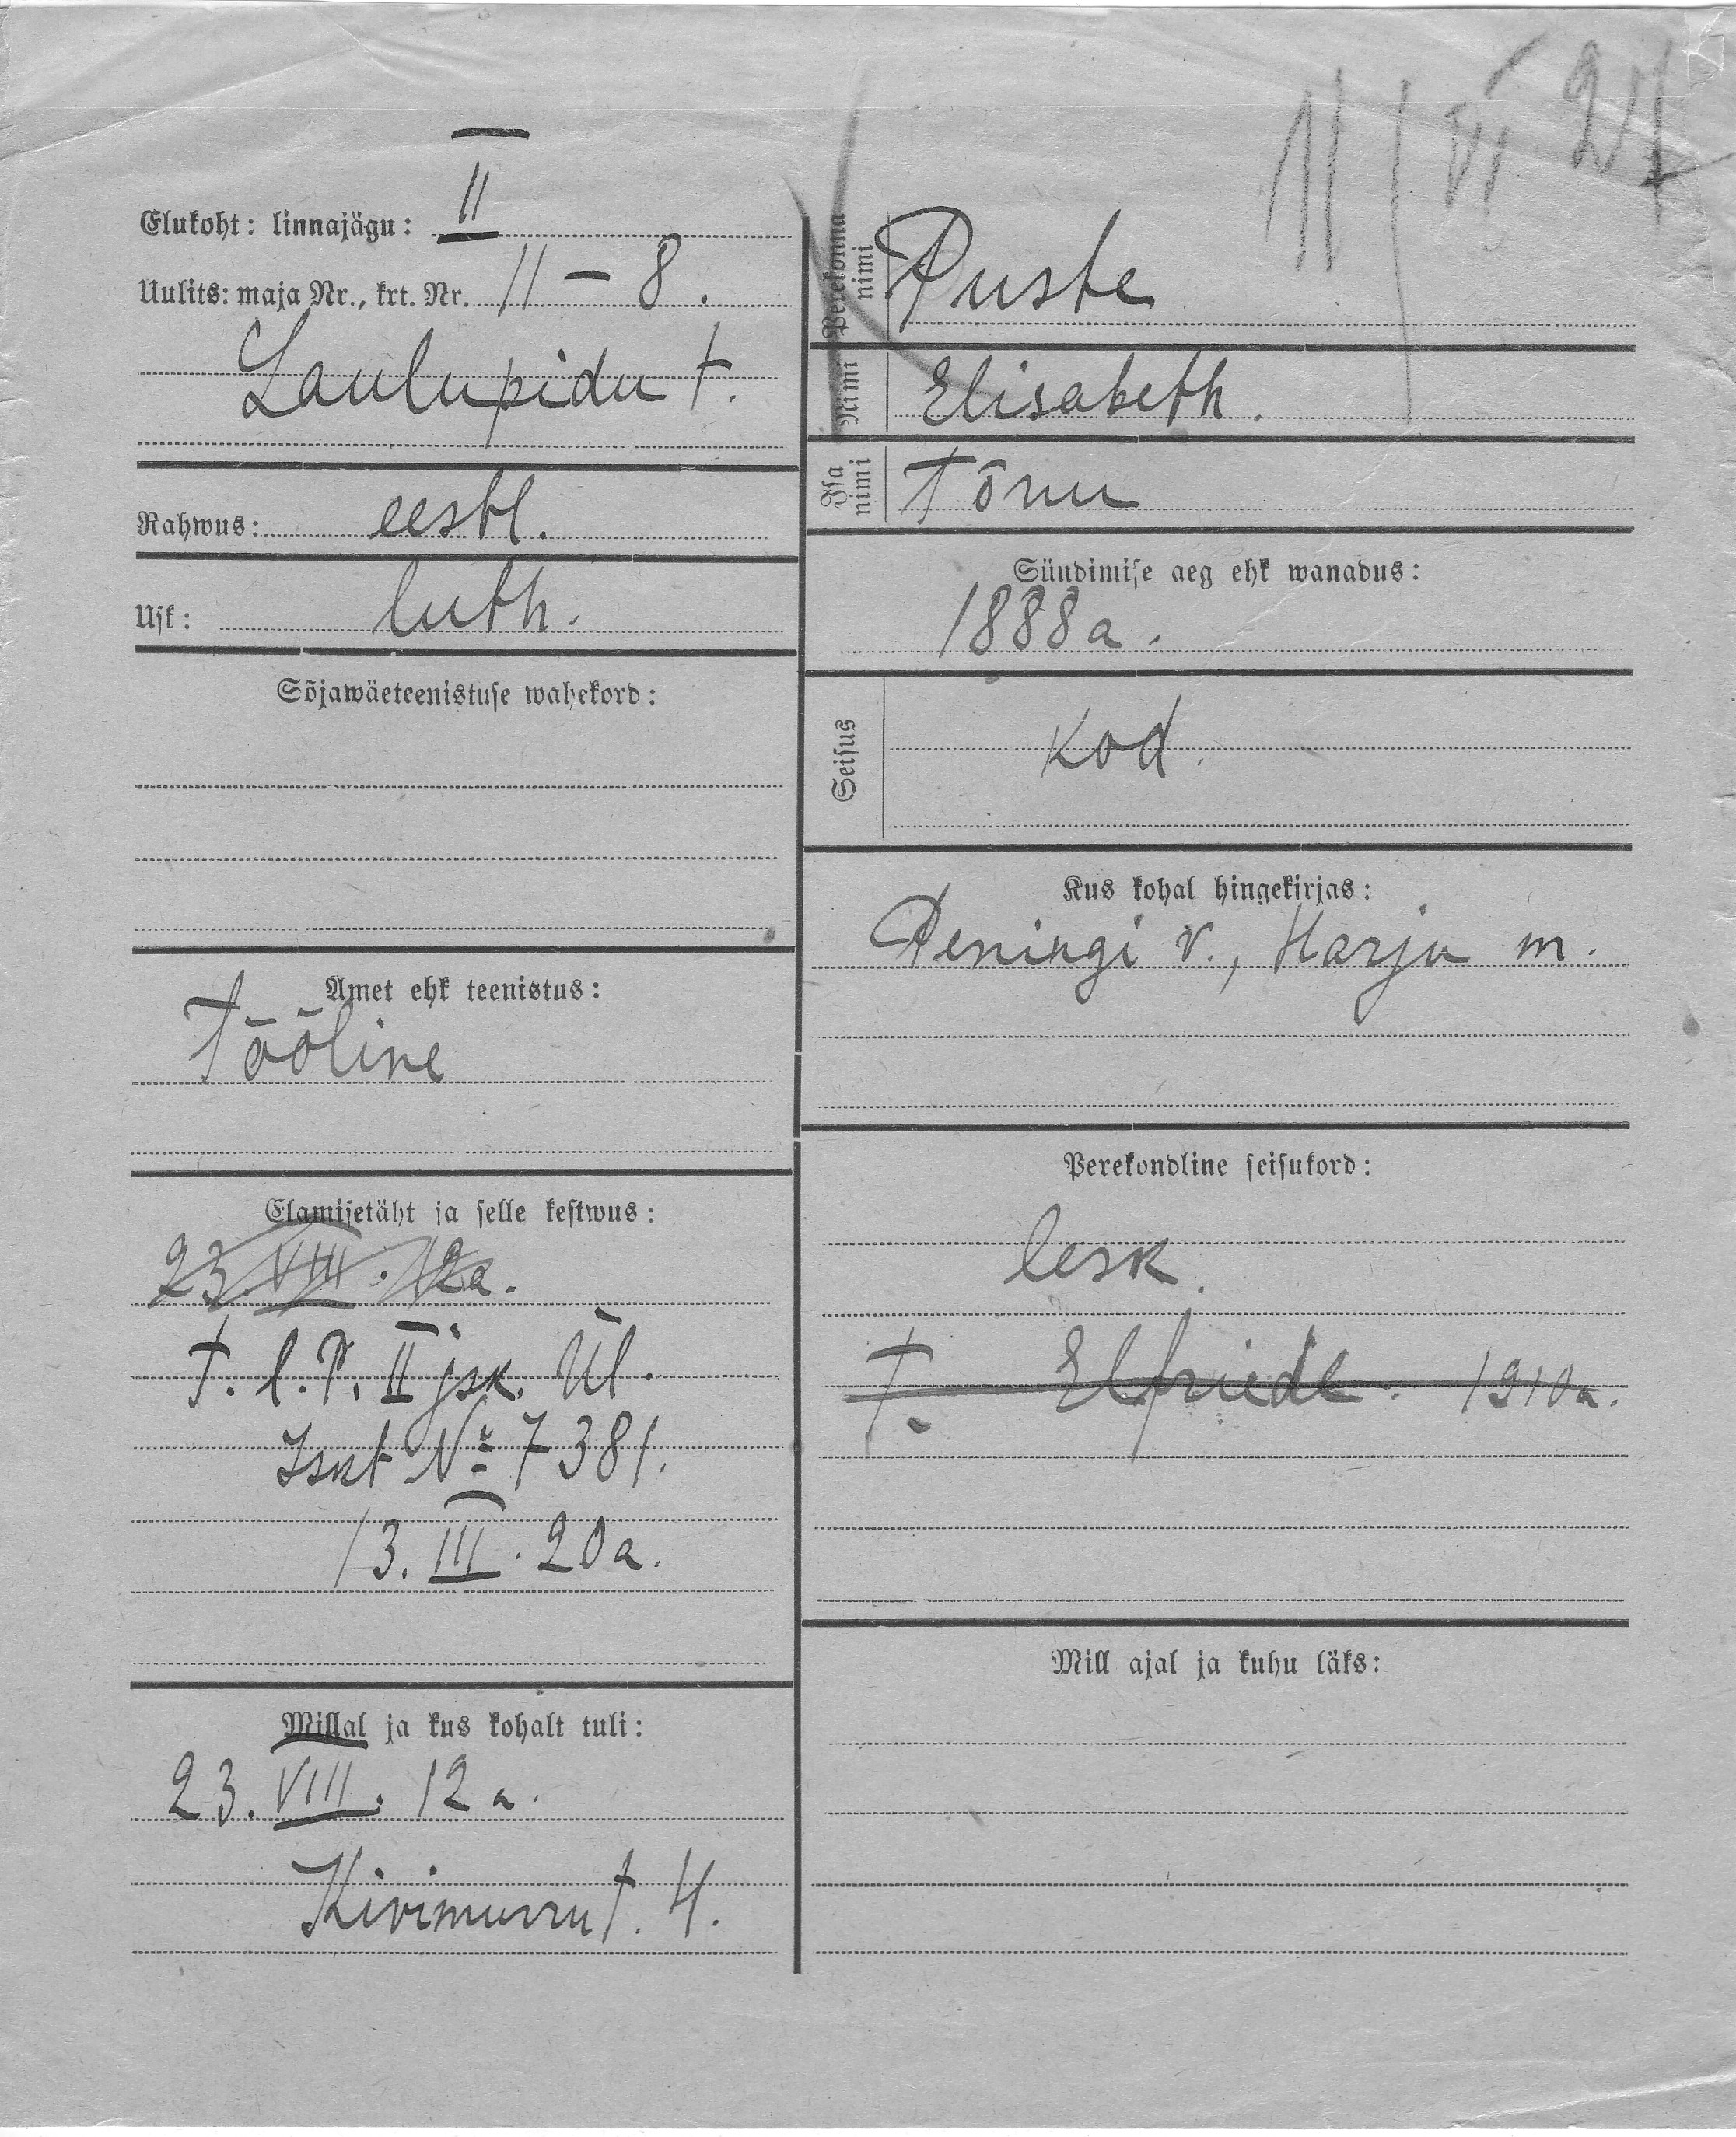 11 / VI 24
Elukoht: linnajägu: II
Uulits: maja Nr., krt. Nr. 11 – 8.
Laulupidu t.
Rahwus: eestl.
Usk: luth.
Sõjawäeteenistuse wahekord:
Amet ehk teenistus:
Tööline
Elamisetäht ja selle kestwus:
23. VIII. 12a.
T. l. P. II jsk. Ül.
Isnt № 7381.
13. III. 20a.
Millal ja kus kohalt tuli:
23. VIII. 12 a.
Kivimurru t. 4.
Perekonna nimi Puste
Nimi Elisabeth.
Isa nimi Tõnu
Sündimise aeg ehk wanadus:
1888a.
Seisus kod.
Kus kohal hingekirjas:
Peningi v., Harju m.
Perekondline seisukord:
lesk.
T. Elfriede. 1910a.
Mill ajal ja kuhu läks: